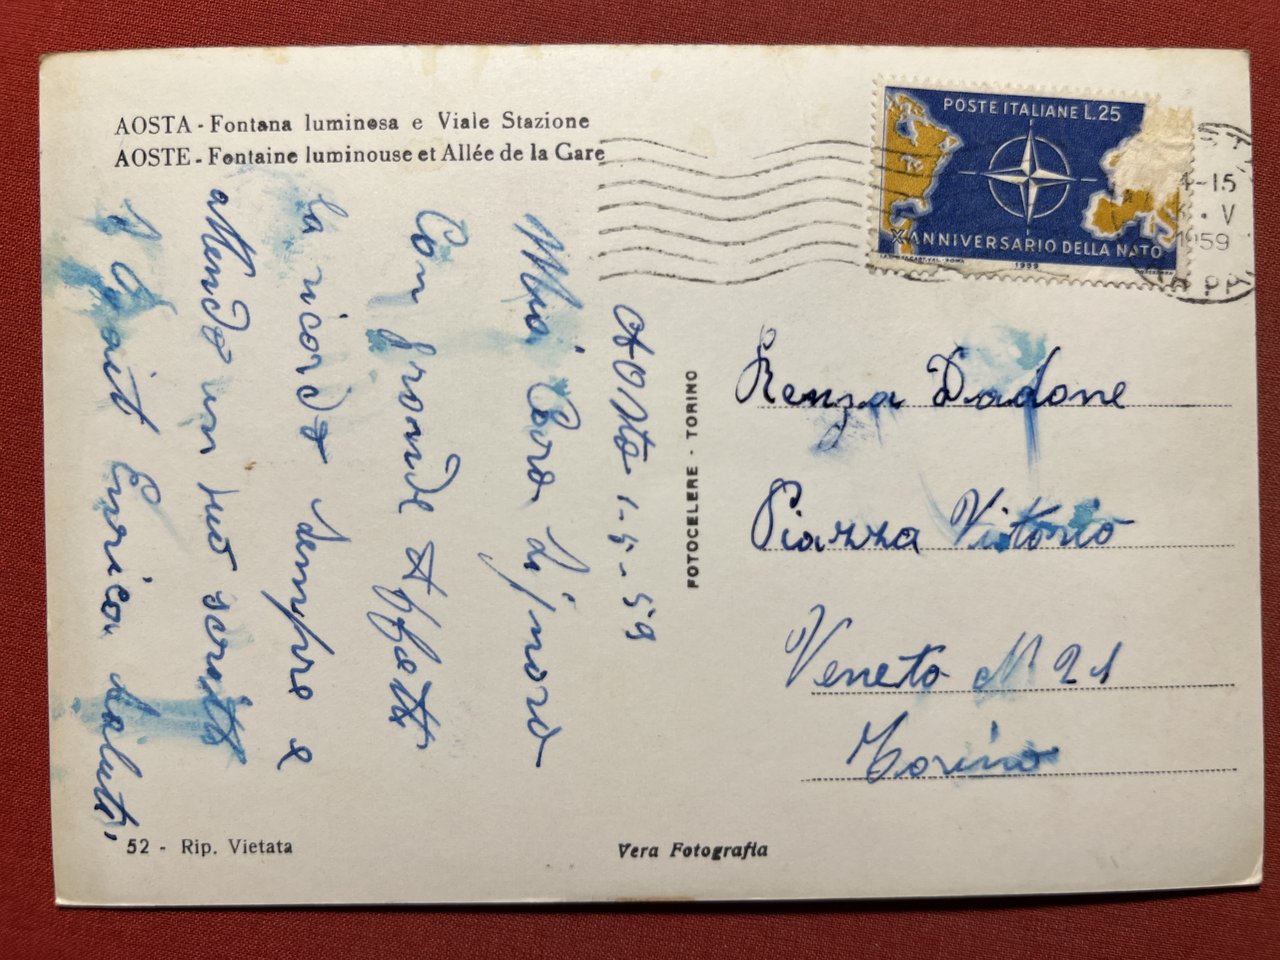 AOSTA - Fontana luminosa e Viale Stazione
AOSTE - Fontaine luminouse et Allée de la Gare
POSTE ITALIANE L.25
X ANNIVERSARIO DELLA NATO
1959
4-15
V
1959
Aosta 1-5-59
Mia Cara Signora
Con grande Affetto
la ricordo sempre e
Attendo un suo scritto
Enrica Saluta
FOTOCELERE - TORINO
Renza Dadone
Piazza Vittorio
Veneto N 21
Torino
52 - Rip. Vietata
Vera Fotografia